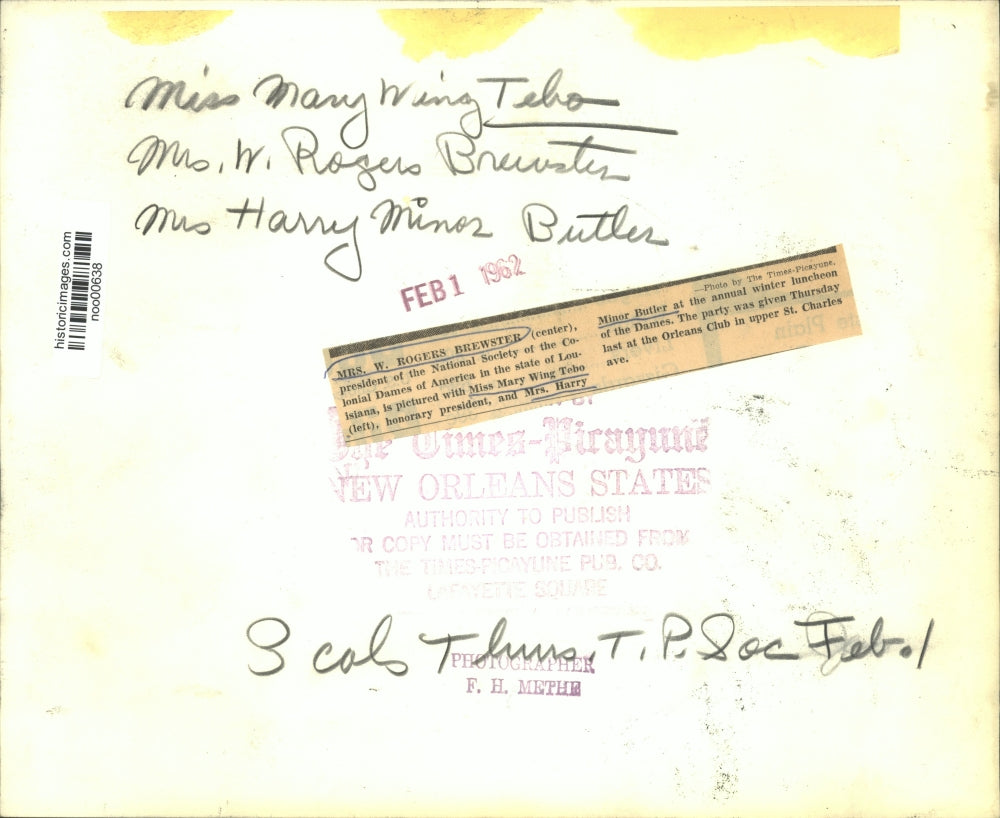 Miss Mary Wing Tebo
Mrs. W. Rogers Brewster
Mrs Harry Minor Butler
historicimages.com
noo00638
FEB 1 1962
MRS. W. ROGERS BREWSTER (center),
president of the National Society of the Co-
lonial Dames of America in the state of Lou-
isiana, is pictured with Miss Mary Wing Tebo
(left), honorary president, and Mrs. Harry
—Photo by The Times-Picayune.
Minor Butler at the annual winter luncheon
of the Dames. The party was given Thursday
last at the Orleans Club in upper St. Charles
ave.
The Times-Picayune
NEW ORLEANS STATES
AUTHORITY TO PUBLISH
OR COPY MUST BE OBTAINED FROM
THE TIMES-PICAYUNE PUB. CO.
LAFAYETTE SQUARE
3 cols Thurs. T. P. Soc Feb. 1
PHOTOGRAPHER
F. H. METHE